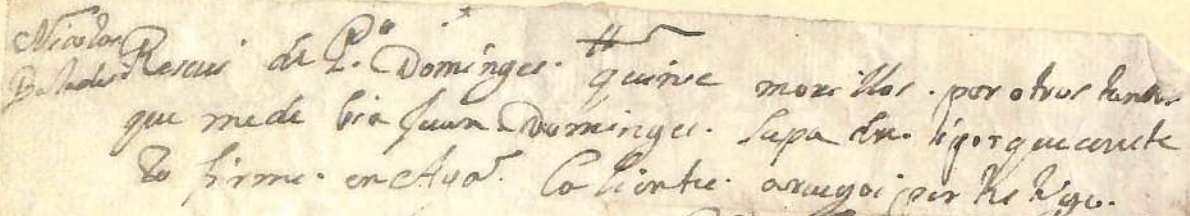 Nicolas
Resevi de P.º Domingues. quinse morillos. por otros tantos
que me de bia Juan Domingues. Su pa dre. i porque conste
lo firme. en Agua. Caliente. a ruego i por testigo.